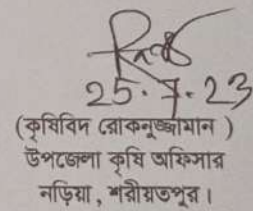 25.7.23
(কৃষিবিদ রোকনুজ্জামান )
উপজেলা কৃষি অফিসার
নড়িয়া, শরীয়তপুর।